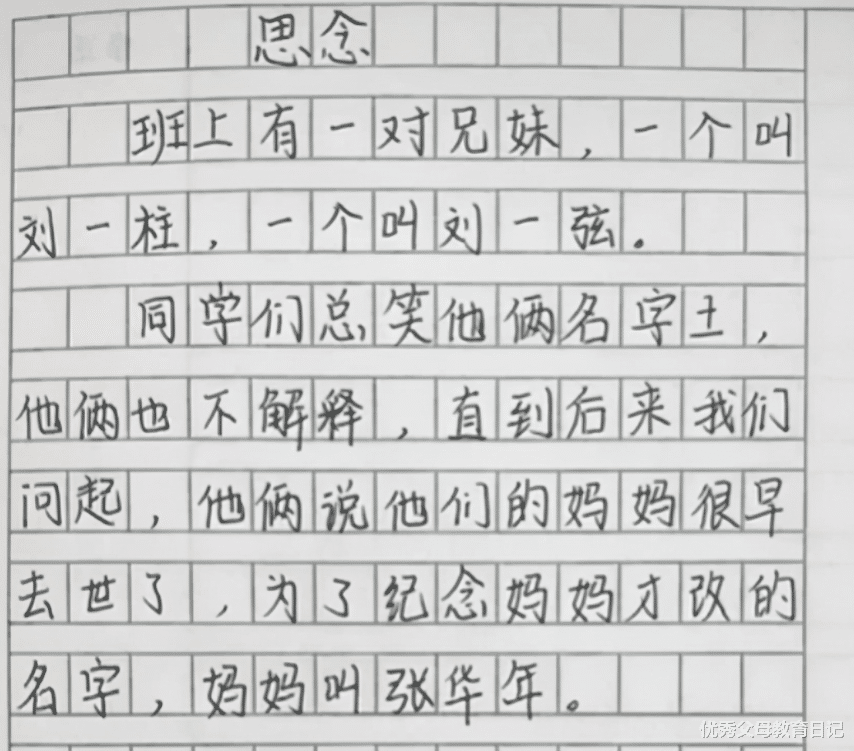 思念
班上有一对兄妹，一个叫
刘一柱，一个叫刘一弦。
同学们总笑他俩名字土，
他俩也不解释，直到后来我们
问起，他俩说他们的妈妈很早
去世了，为了纪念妈妈才改的
名字，妈妈叫张华年。
优秀父母教育日记